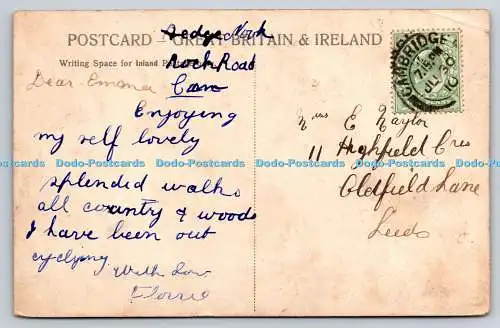 Sedge Nook
POSTCARD – GREAT BRITAIN & IRELAND
Road
Writing Space for Inland
Dear Emma
Cam
Enjoying
my self lovely
splendid walks
all country & woods
I have been out
cyclying
With Love
Florrie
CAMBRIDGE
7.15 PM
JU
10
Mrs E Naylor
11 Highfield Cres
Oldfield Lane
Leeds
Dodo-Postcards Dodo-Postcards Dodo-Postcards Dodo-Postcards Dodo-Postcards Dodo-Postcards